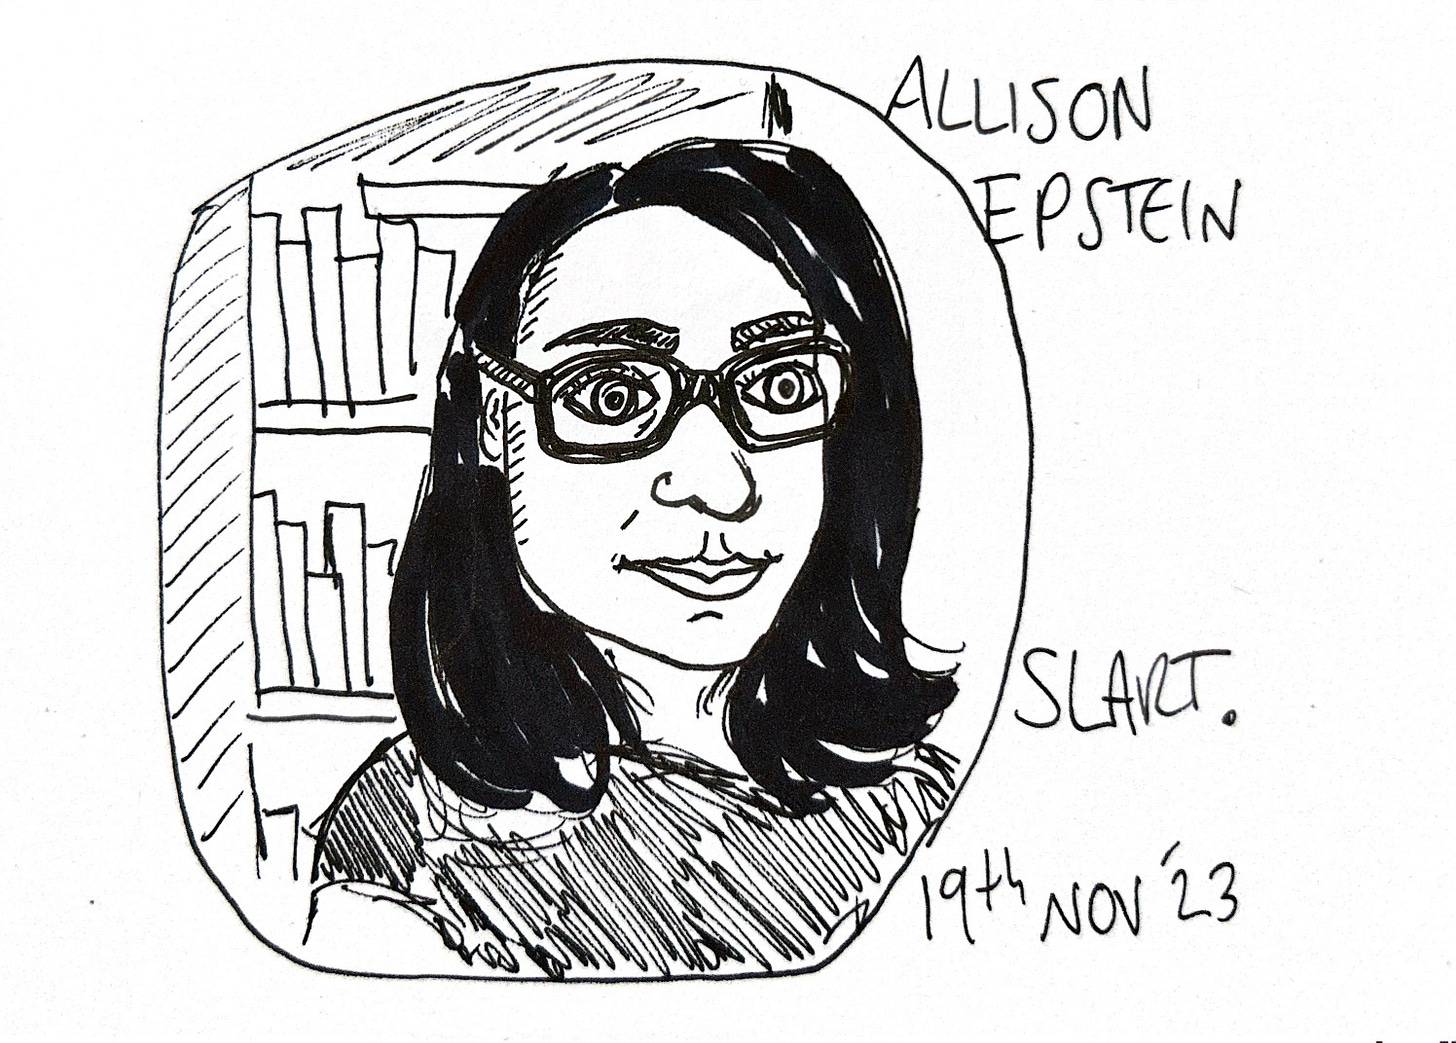 ALLISON
EPSTEIN
SLART.
19th NOV '23